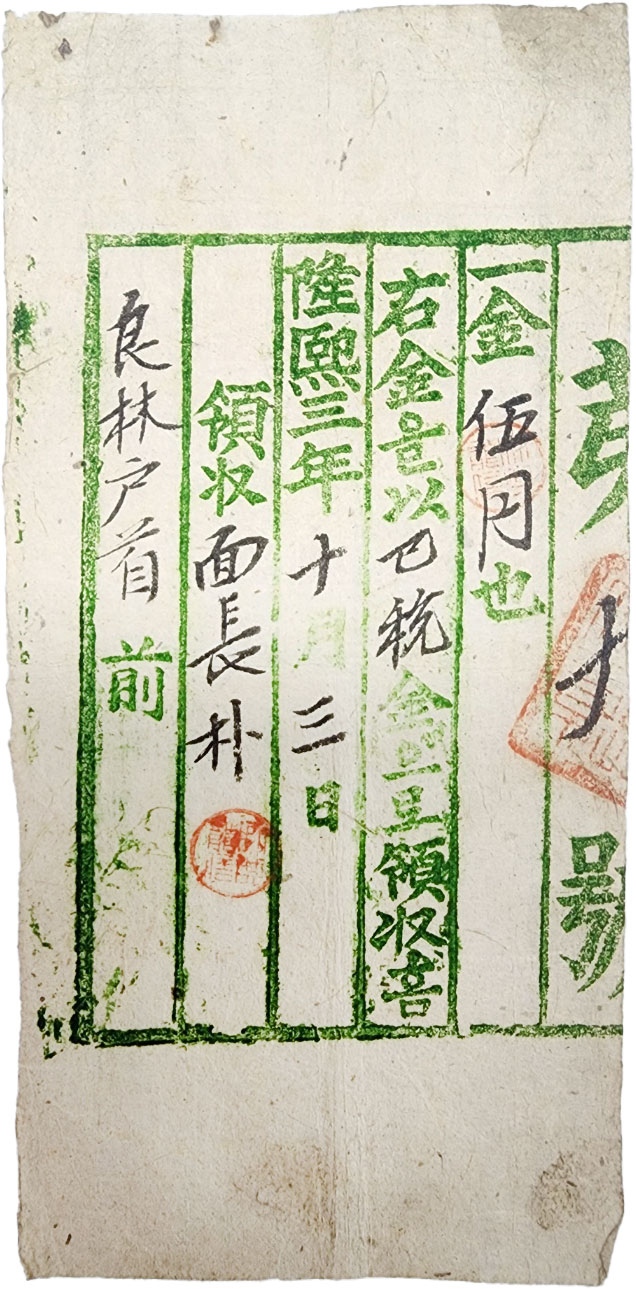 第十號
一金伍円也
右金은以税金으로領収홈
隆熙三年十月三日
領収面長朴
良林戶首前